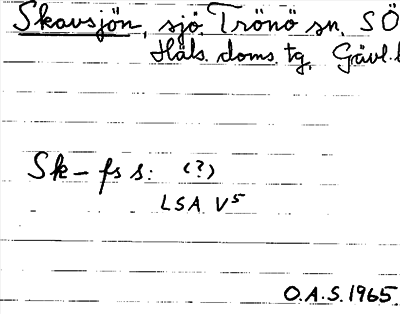 Skavsjön, sjö. Trönö sn. SÖ
Häls. doms. tg. Gävl.
Sk-fs s: (?)
LSA V5
O.A.S. 1965